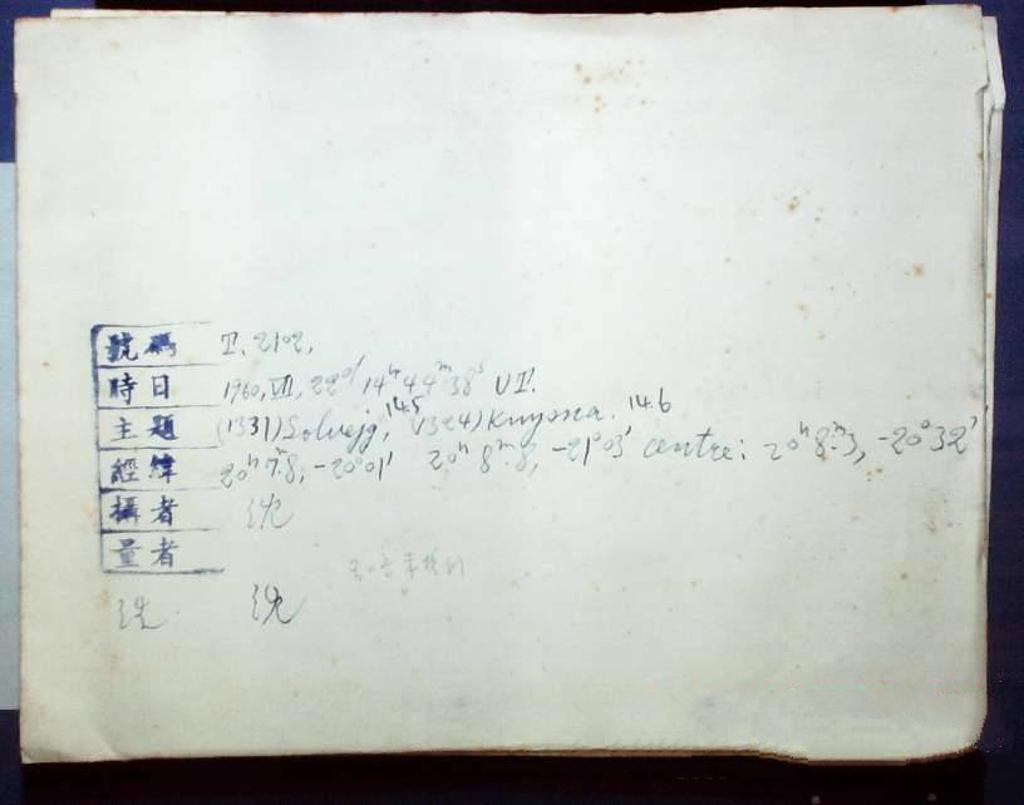 號碼 T. 2102.
時日 1960, VII, 22ᵈ 14ʰ44ᵐ38ˢ UT.
主題 (1331) Solvejg, 14.5 (1324) Knysna. 14.6
經緯 20ʰ7ᵐ.8, -20°01' 20ʰ8ᵐ.8, -21°03' centre: 20ʰ8ᵐ.3, -20°32'
攝者 沈
量者
洗 沈